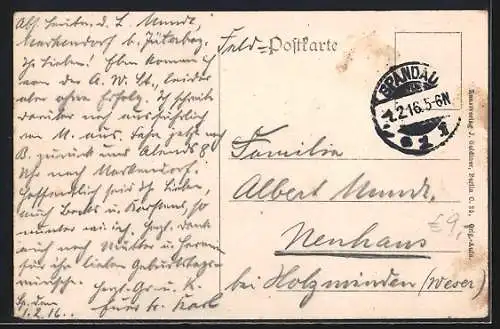 Abs. Leutn. d. L. Munde,
Markendorf b. Jüterbog.
Ihr Lieben! Eben komme ich
von der A. W. St., leider
aber ohne Erfolg. Ich schreibe
darüber noch ausführlich
von M. aus. Fahre jetzt nach
B. zurück und Abends 8
Uhr nach Markendorf.
Hoffentlich seid ihr Lieben,
auch Karstens, so
munter wie ich. Herzl. Dank
auch noch Mutter u.
für ihre lieben Geburtstags-
wünsche.
Herzl. Gr. u. K.
Euer Karl
Sp. den
1.2.16.
Feld-Postkarte
SPANDAU
1.2.16.5-6N
1
Familie
Albert Munde,
Neuhaus
bei Holzminden (Weser)
€ 9,-
Kunstverlag J. Goldiner, Berlin C. 25. Orig.-Aufn.